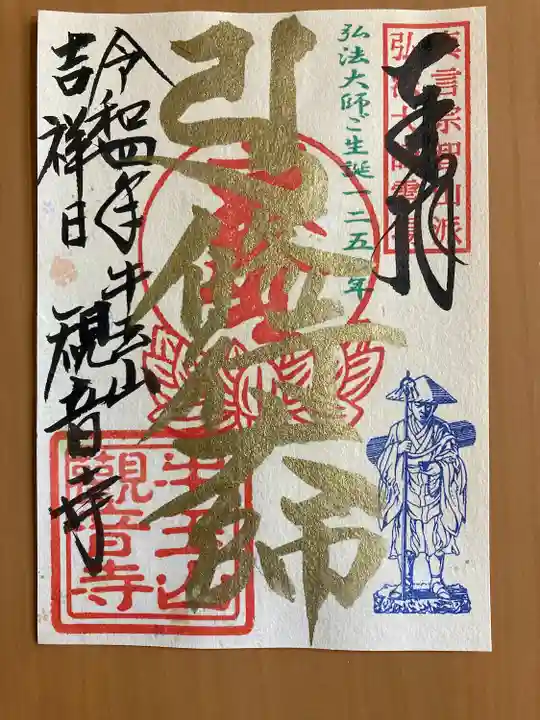 真言宗智山派
弘法大師霊場
奉拝
弘法大師ご生誕一二五〇年
修行大師
令和四年 牛玉山
吉祥日 観音寺
牛玉山
觀音寺